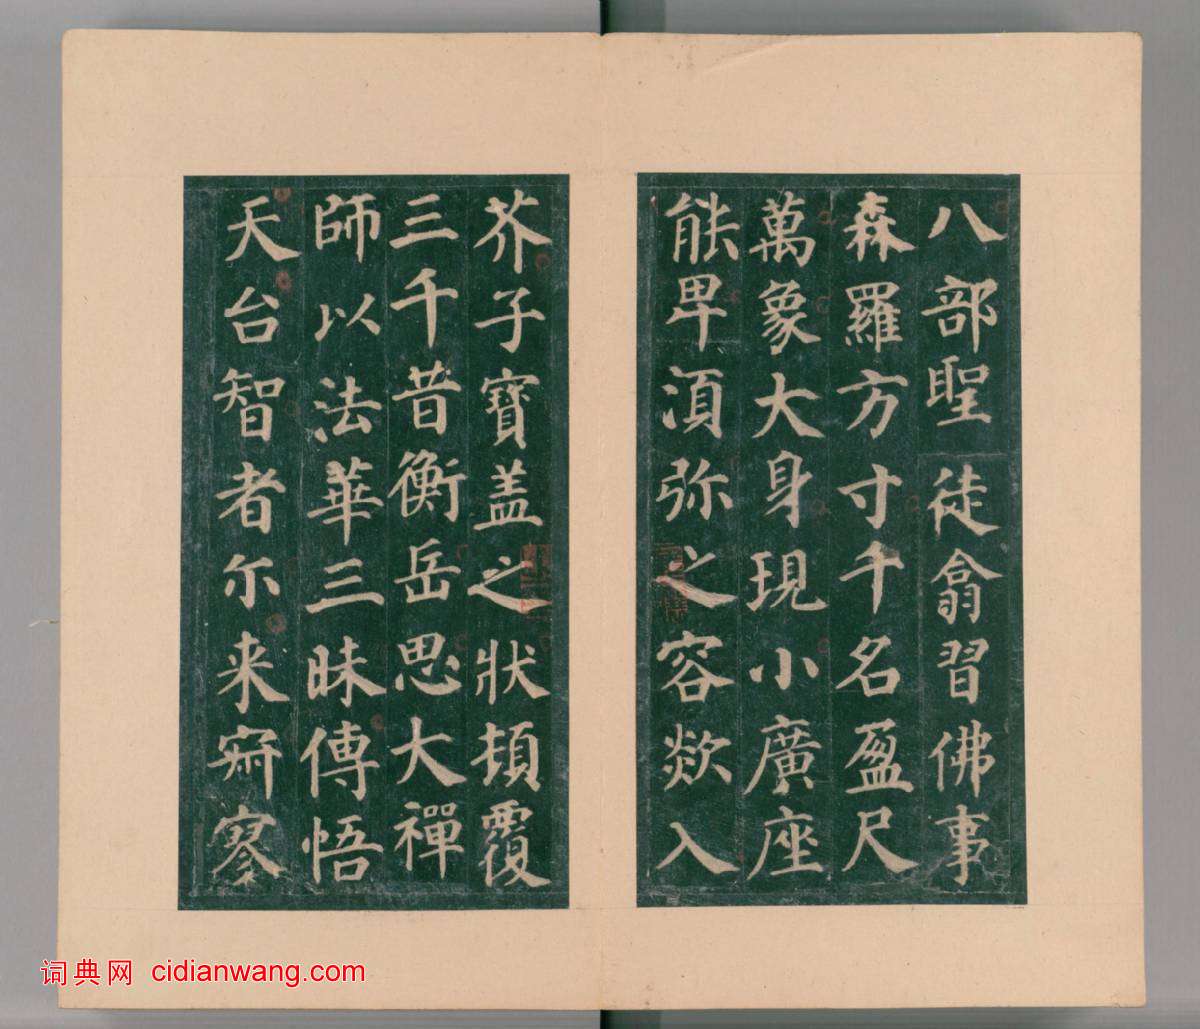 八部聖徒翕習佛事
森羅方寸千名盈尺
萬象大身現小廣座
能卑湏弥之容欻入
芥子寳盖之狀頓覆
三千昔衡岳思大禪
師以法華三昧傳悟
天台智者尔来寂寥
词典网 cidianwang.com